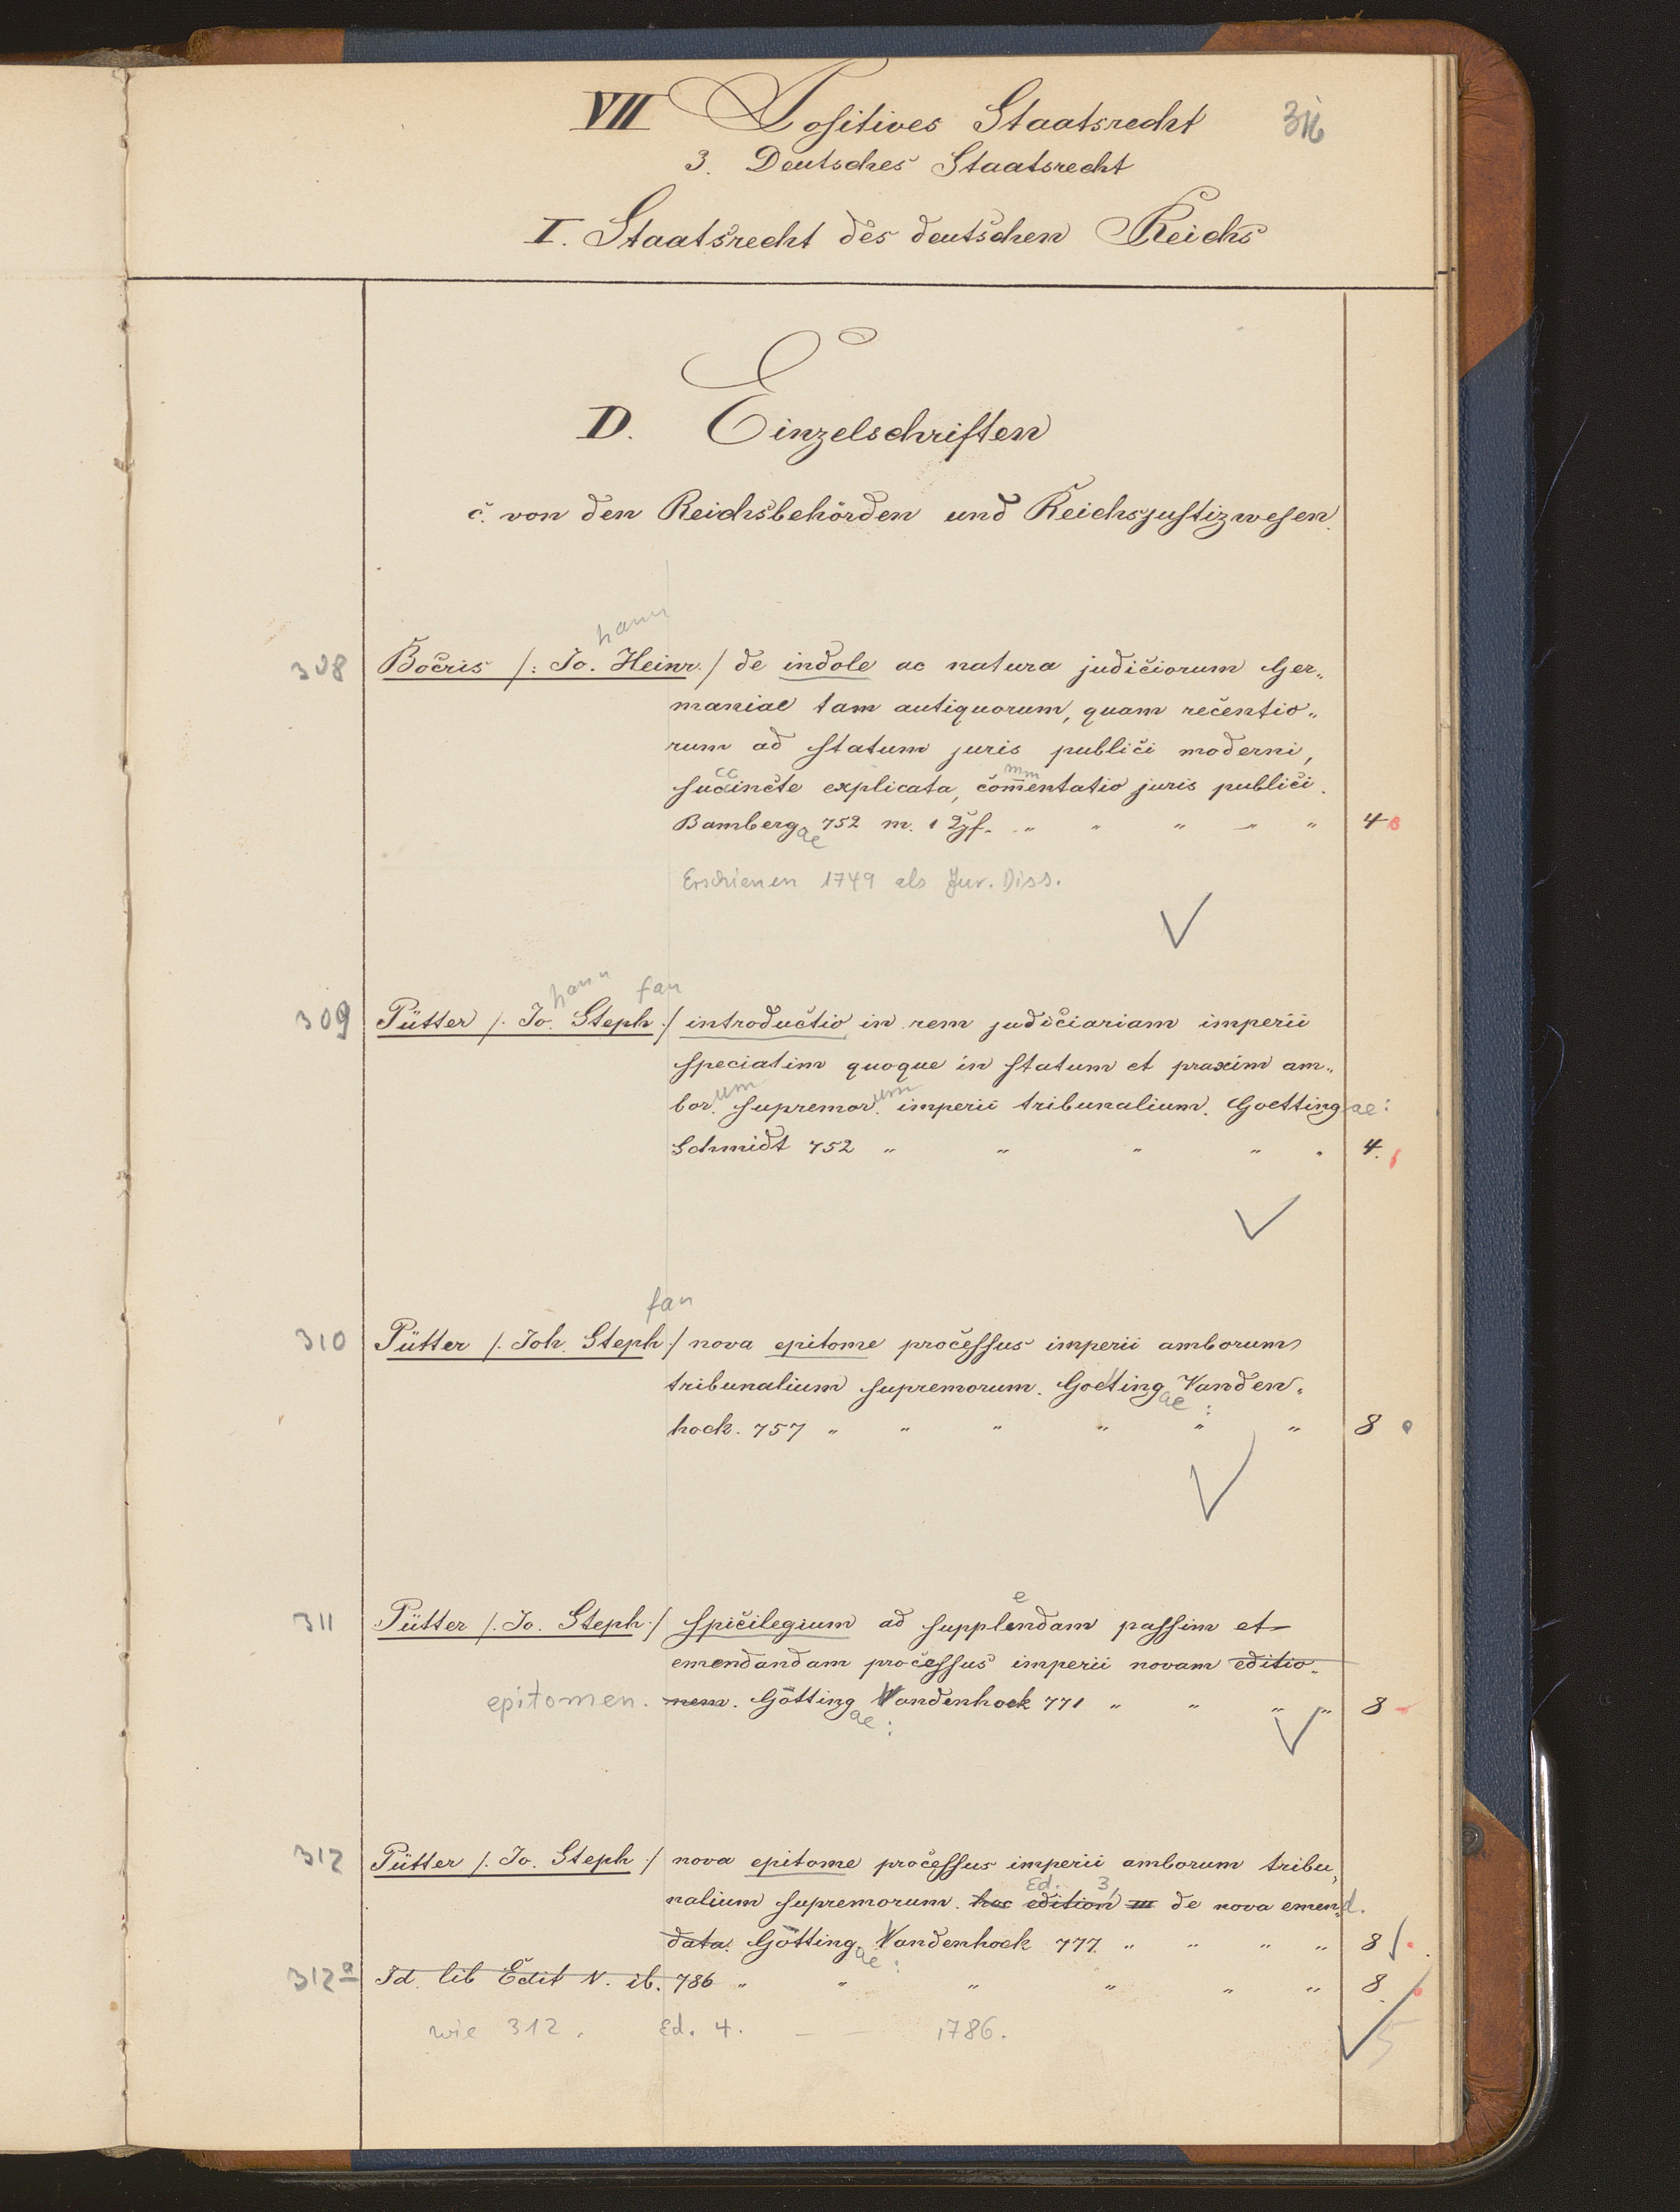 VII Positives Staatsrecht
3. Deutsches Staatsrecht
I. Staatsrecht des deutschen Reichs
D. Einzelschriften
c. von den Reichsbehörden und Reichsjustizwesen.
hann
308 Bocris /: Jo. Heinr. / de indole ac natura judiciorum Ger„
maniae tam antiquorum, quam recentio„
rum ad statum juris publici moderni,
cc mm
succincte explicata, com̅entatio juris publici.
Bambergae 752 m. 1 „ „ „ „ „ 4
Erschienen 1749 als Jur. Diss.
hann fan
309 Pütter /. Jo. Steph ./ introductio in rem judiciariam imperii
speciatim quoque in statum et praxim am„
bor.um supremor.um imperii tribunalium. Goettingae:
Schmidt 752 „ „ „ „ „ 4.
fan
310 Pütter /. Joh. Steph ./ nova epitome processus imperii amborum
tribunalium supremorum. Goettingae: Vanden„
hock. 757 „ „ „ „ „ „ 8
e
311 Pütter /. Jo. Steph ./ spicilegium ad supplendam passim et
emendandam processus imperii novam editio„
epitomen. nem. Göttingae: Vandenhock 771 „ „ „ „ 8
312 Pütter /. Jo. Steph ./ nova epitome processus imperii amborum tribu„
Ed. 3,
nalium supremorum. hac edition III de nova emend.
data. Göttingae: Vandenhock 777. „ „ „ „ 8
312a Id. lib Edit IV. ib. 786 „ „ „ „ „ „ 8.
wie 312. Ed. 4. — — 1786.